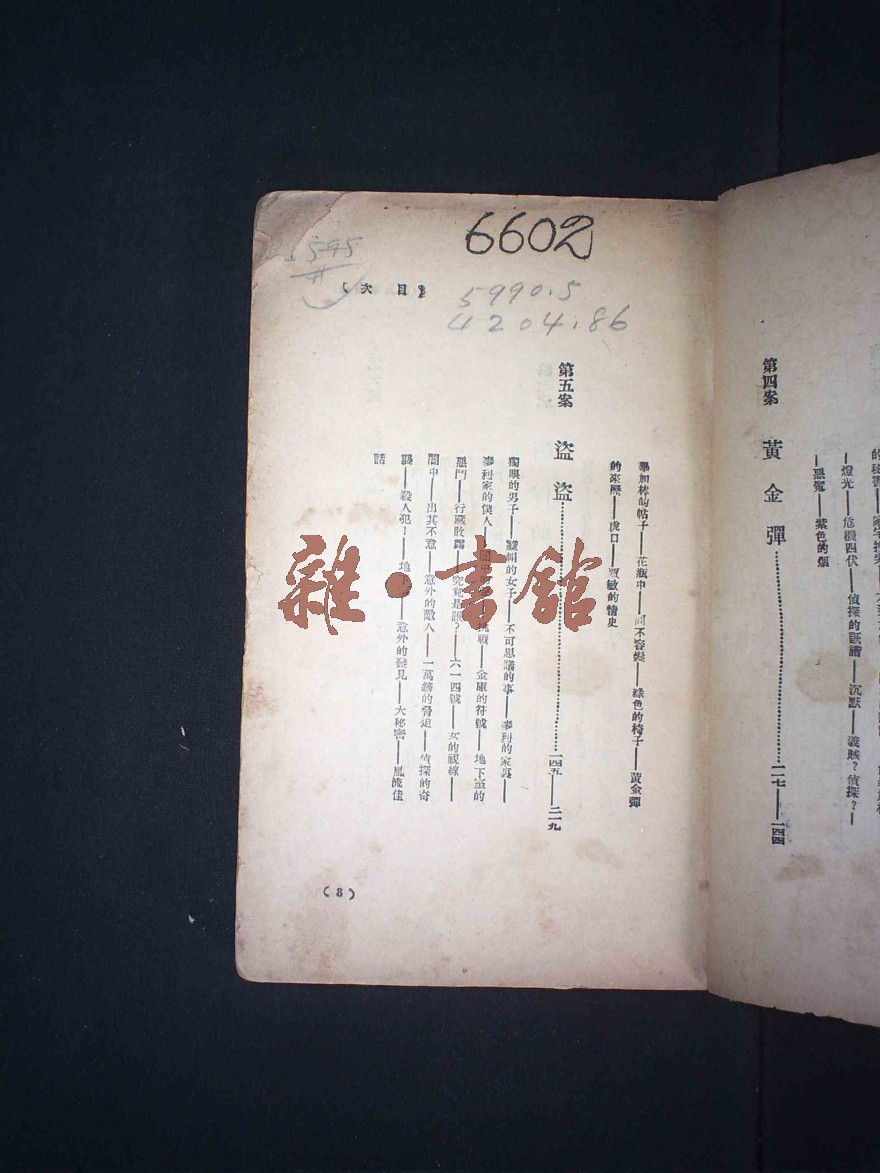 6602
595
目次
5990.5
4204.86
的秘書
燈光——危機四伏——偵探的訴諸——沉默——義賊？偵探？——
惡冤——紫色的烟
第四案 黃金彈…………一二七——一四四
畢加林的帖子——花瓶中——間不容髮——綠色的椅子——黃金彈
的來歷——虎口——賈敏的情史
第五案 盜盜…………一四五——二一九
獨眼的男子——的女子——不可思議的事——麥利的家裏——
麥利家的僕人——挑戰——金庫的符號——地下室的
惡鬥——行藏敗露——究竟是誰？——六一四號——女的視線——
闇中——出其不意——意外的敵人——一萬鎊的脅迫——偵探的奇
襲——殺人犯？——地下——意外的發見——大秘密——風流佳
話
雜·書館
(8)